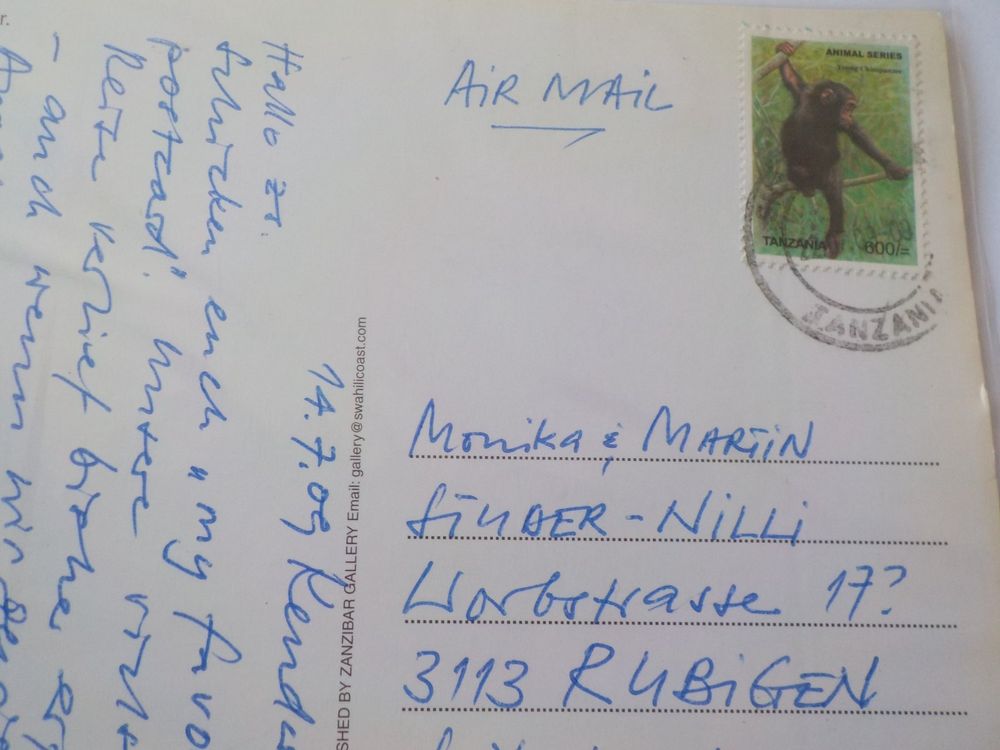 AiR MAiL
ANIMAL SERIES
Young Chimpanzee
TANZANIA 600/=
TANZANIA
Monika & MARTiN
WILLI
Worbstrasse 17?
3113 RUBiGEN
SHED BY ZANZIBAR GALLERY Email: gallery@swahilicoast.com
14.7.09
Hallo zs.
schicken euch "my favo
postcard". Unsere
Reise verlief bisher
- auch wenn wir
r.